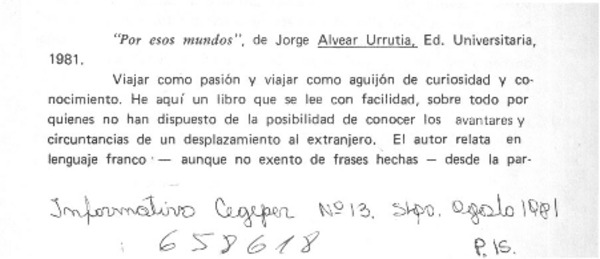 "Por esos mundos", de Jorge Alvear Urrutia, Ed. Universitaria,
1981.
Viajar como pasión y viajar como aguijón de curiosidad y co-
nocimiento. He aquí un libro que se lee con facilidad, sobre todo por
quienes no han dispuesto de la posibilidad de conocer los avantares y
circuntancias de un desplazamiento al extranjero. El autor relata en
lenguaje franco — aunque no exento de frases hechas — desde la par-
Informativo Cegeper Nº 13. Stgo. agosto 1981
658618 P. 15.